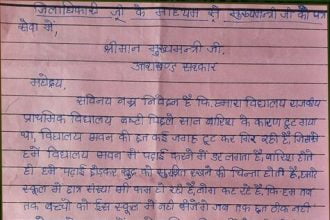 जिलाधिकारी जी के माध्यम से मुख्यमन्त्री जी को पत्र
सेवा में,
श्रीमान मुख्यमन्त्री जी,
उत्तराखण्ड सरकार
महोदय,
सविनय नम्र निवेदन है कि हमारा विद्यालय राजकीय
प्राथमिक विद्यालय पिछले साल बारिश के कारण टूट गया
था, विद्यालय भवन की छत कई जगह टूट कर गिर रही है, जिससे
हमें विद्यालय भवन में पढ़ाई करने में डर लगता है, बारिश होते
ही हमें पढ़ाई छोड़कर खुद को सुरक्षित रखने की चिन्ता होती है, हमारे
स्कूल में छात्र संख्या भी कम हो रही है, लोग कह रहे है, कि हम तब
तक बच्चों को इस स्कूल में नही भेजेंगे जब तक छत ठीक नही